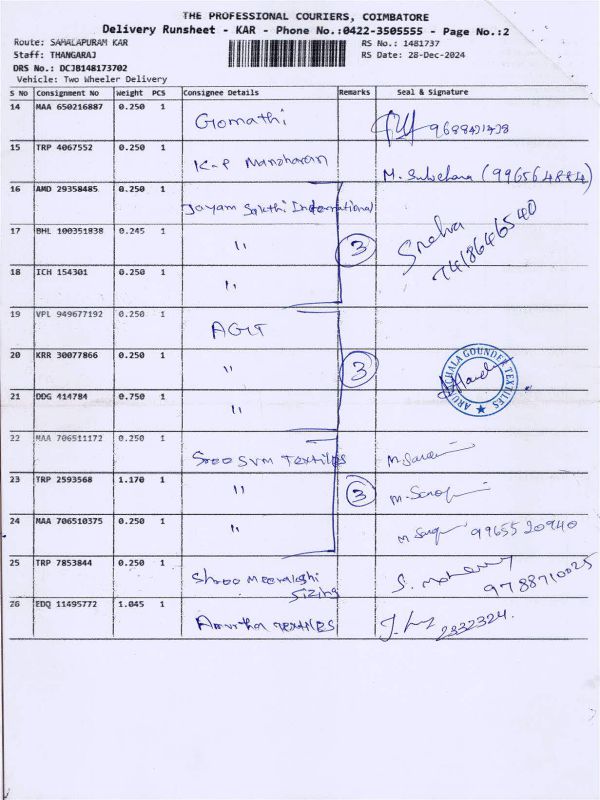 THE PROFESSIONAL COURIERS, COIMBATORE
Delivery Runsheet - KAR - Phone No.:0422-3505555 - Page No.:2
Route: SAMALAPURAM KAR RS No.: 1481737
Staff: THANGARAJ RS Date: 28-Dec-2024
DRS No.: DCJB148173702
Vehicle: Two Wheeler Delivery
S No Consignment No Weight PCS Consignee Details Remarks Seal & Signature
14 MAA 650216887 0.250 1 Gomathi
15 TRP 4067552 0.250 1 K-P Manoharan
16 AMD 29358485 0.250 1 Jayam Sakthi International
17 BHL 100351838 0.245 1 " 3 Sneha
7418646540
18 ICH 154301 0.250 1 "
19 VPL 949677192 0.250 1 AGIT
20 KRR 30077866 0.250 1 " 3 ARUNACHALA GOUNDER TEXTILES
21 DDG 414784 0.750 1 "
22 MAA 706511172 0.250 1 Sree SVM Textiles
23 TRP 2593568 1.170 1 " 3
24 MAA 706510375 0.250 1 " 9965520940
25 TRP 7853844 0.250 1 Shree Meenakshi
Sizing 9788710025
26 EDQ 11495772 1.045 1 Amirtha Textiles 2332324.